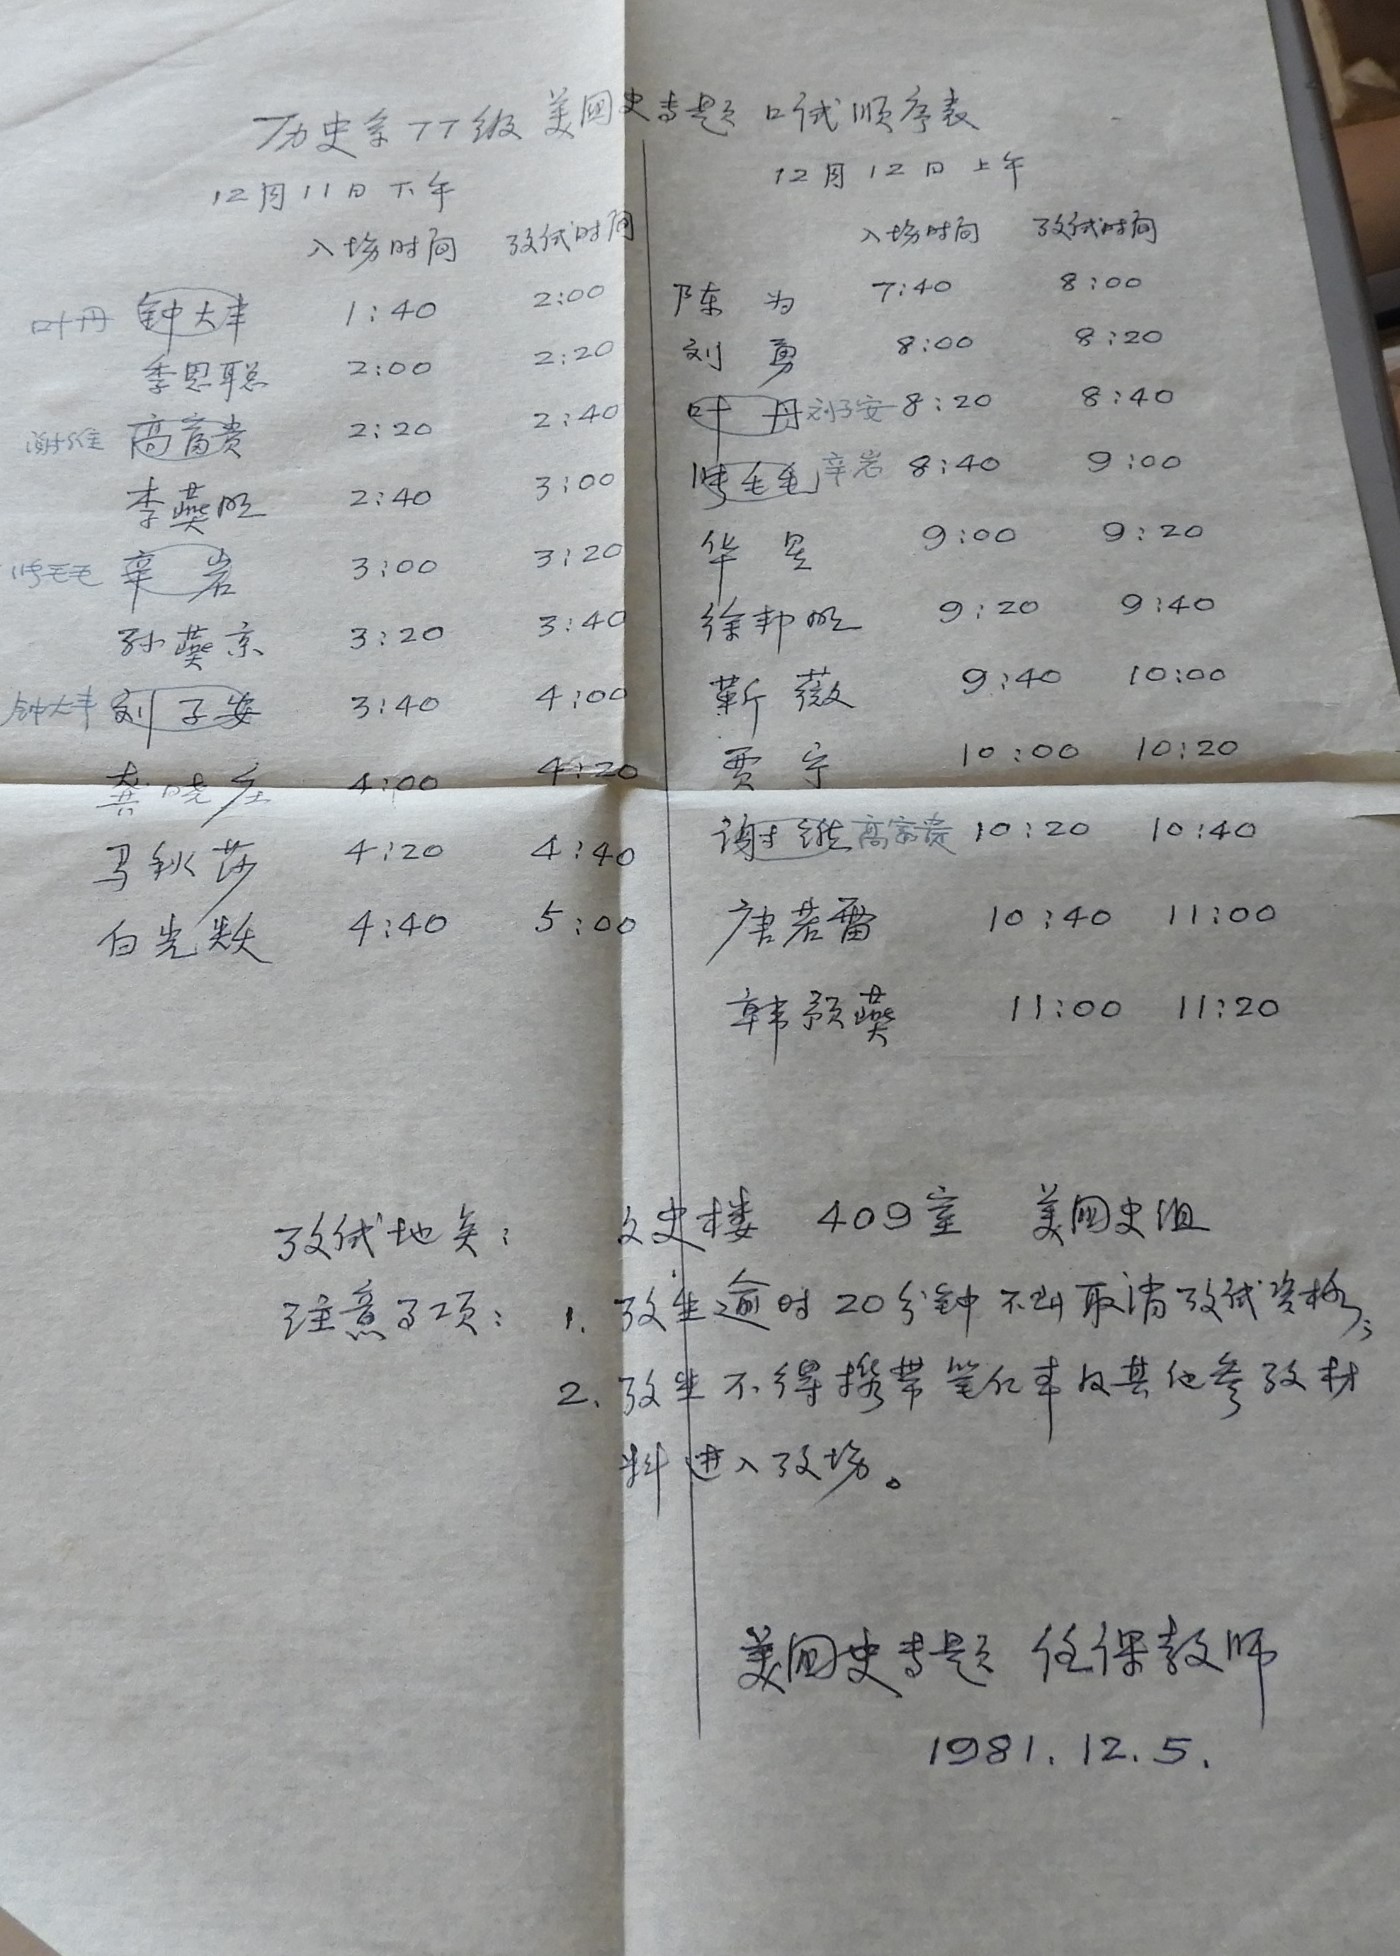 历史系77级美国史专题口试顺序表
12月11日下午
入场时间 考试时间
叶丹 钟大丰 1:40 2:00
季思聪 2:00 2:20
谢维 高富贵 2:20 2:40
李燕明 2:40 3:00
毛毛 辛岩 3:00 3:20
孙燕京 3:20 3:40
钟大丰 刘子安 3:40 4:00
龚晓庄 4:00 4:20
马秋莎 4:20 4:40
白光耀 4:40 5:00
12月12日上午
入场时间 考试时间
陈为 7:40 8:00
刘勇 8:00 8:20
叶丹 刘子安 8:20 8:40
毛毛 辛岩 8:40 9:00
华昱 9:00 9:20
徐邦明 9:20 9:40
靳薇 9:40 10:00
贾宁 10:00 10:20
谢维 高富贵 10:20 10:40
唐若雷 10:40 11:00
韩预燕 11:00 11:20
考试地点: 文史楼 409室 美国史组
注意事项: 1. 考生逾时20分钟不到取消考试资格;
2. 考生不得携带笔记本及其他参考材
料进入考场。
美国史专题 任课教师
1981.12.5.